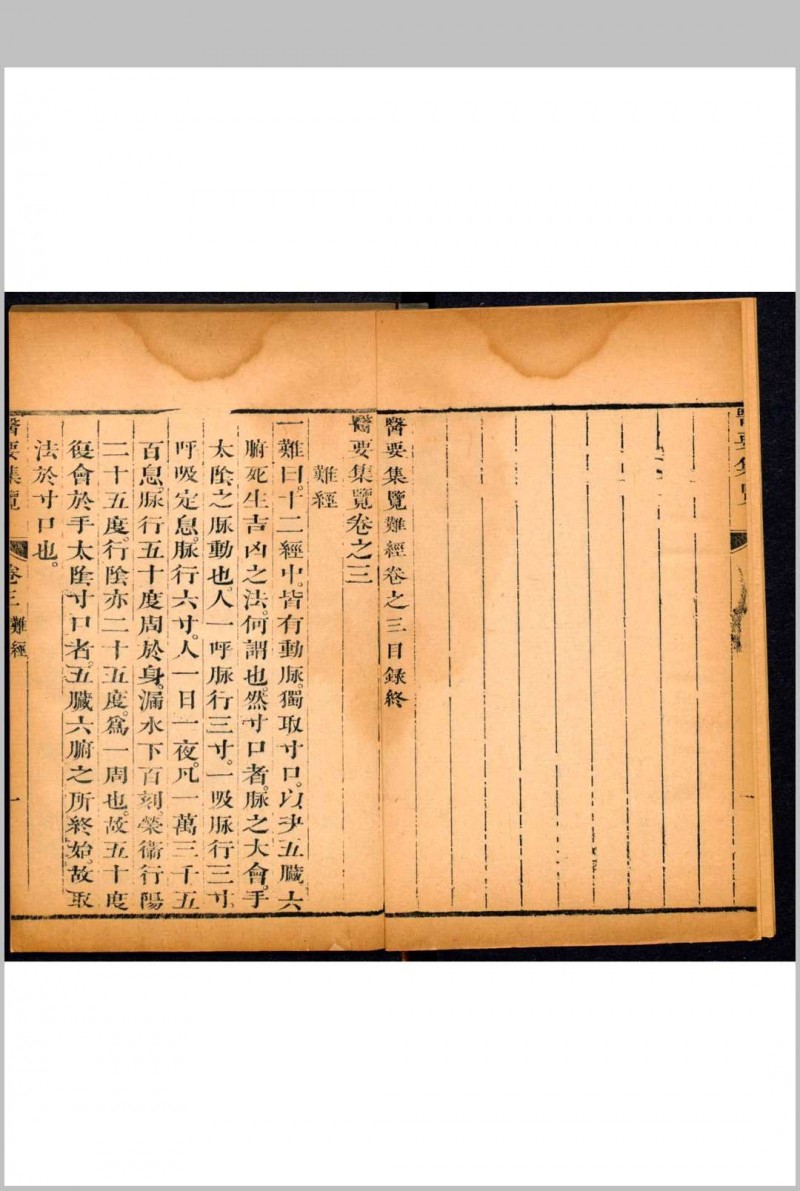 醫要集覽
一
醫要集覽難經卷之三目錄終
醫要集覽卷之三
難經
一難曰。十二經中。皆有動脉。獨取寸口。以決五臟六
腑死生吉凶之法。何謂也。然寸口者。脉之大會。手
太陰之脉動也。人一呼脉行三寸。一吸脉行三寸。
呼吸定息。脉行六寸。人一日一夜。凡一萬三千五
百息。脉行五十度周於身。漏水下百刻。榮衞行陽
二十五度。行陰亦二十五度。爲一周也。故五十度
復會於手太陰寸口者。五臟六腑之所終始。故取
法於寸口也。
醫要集覽 卷三 難經 一